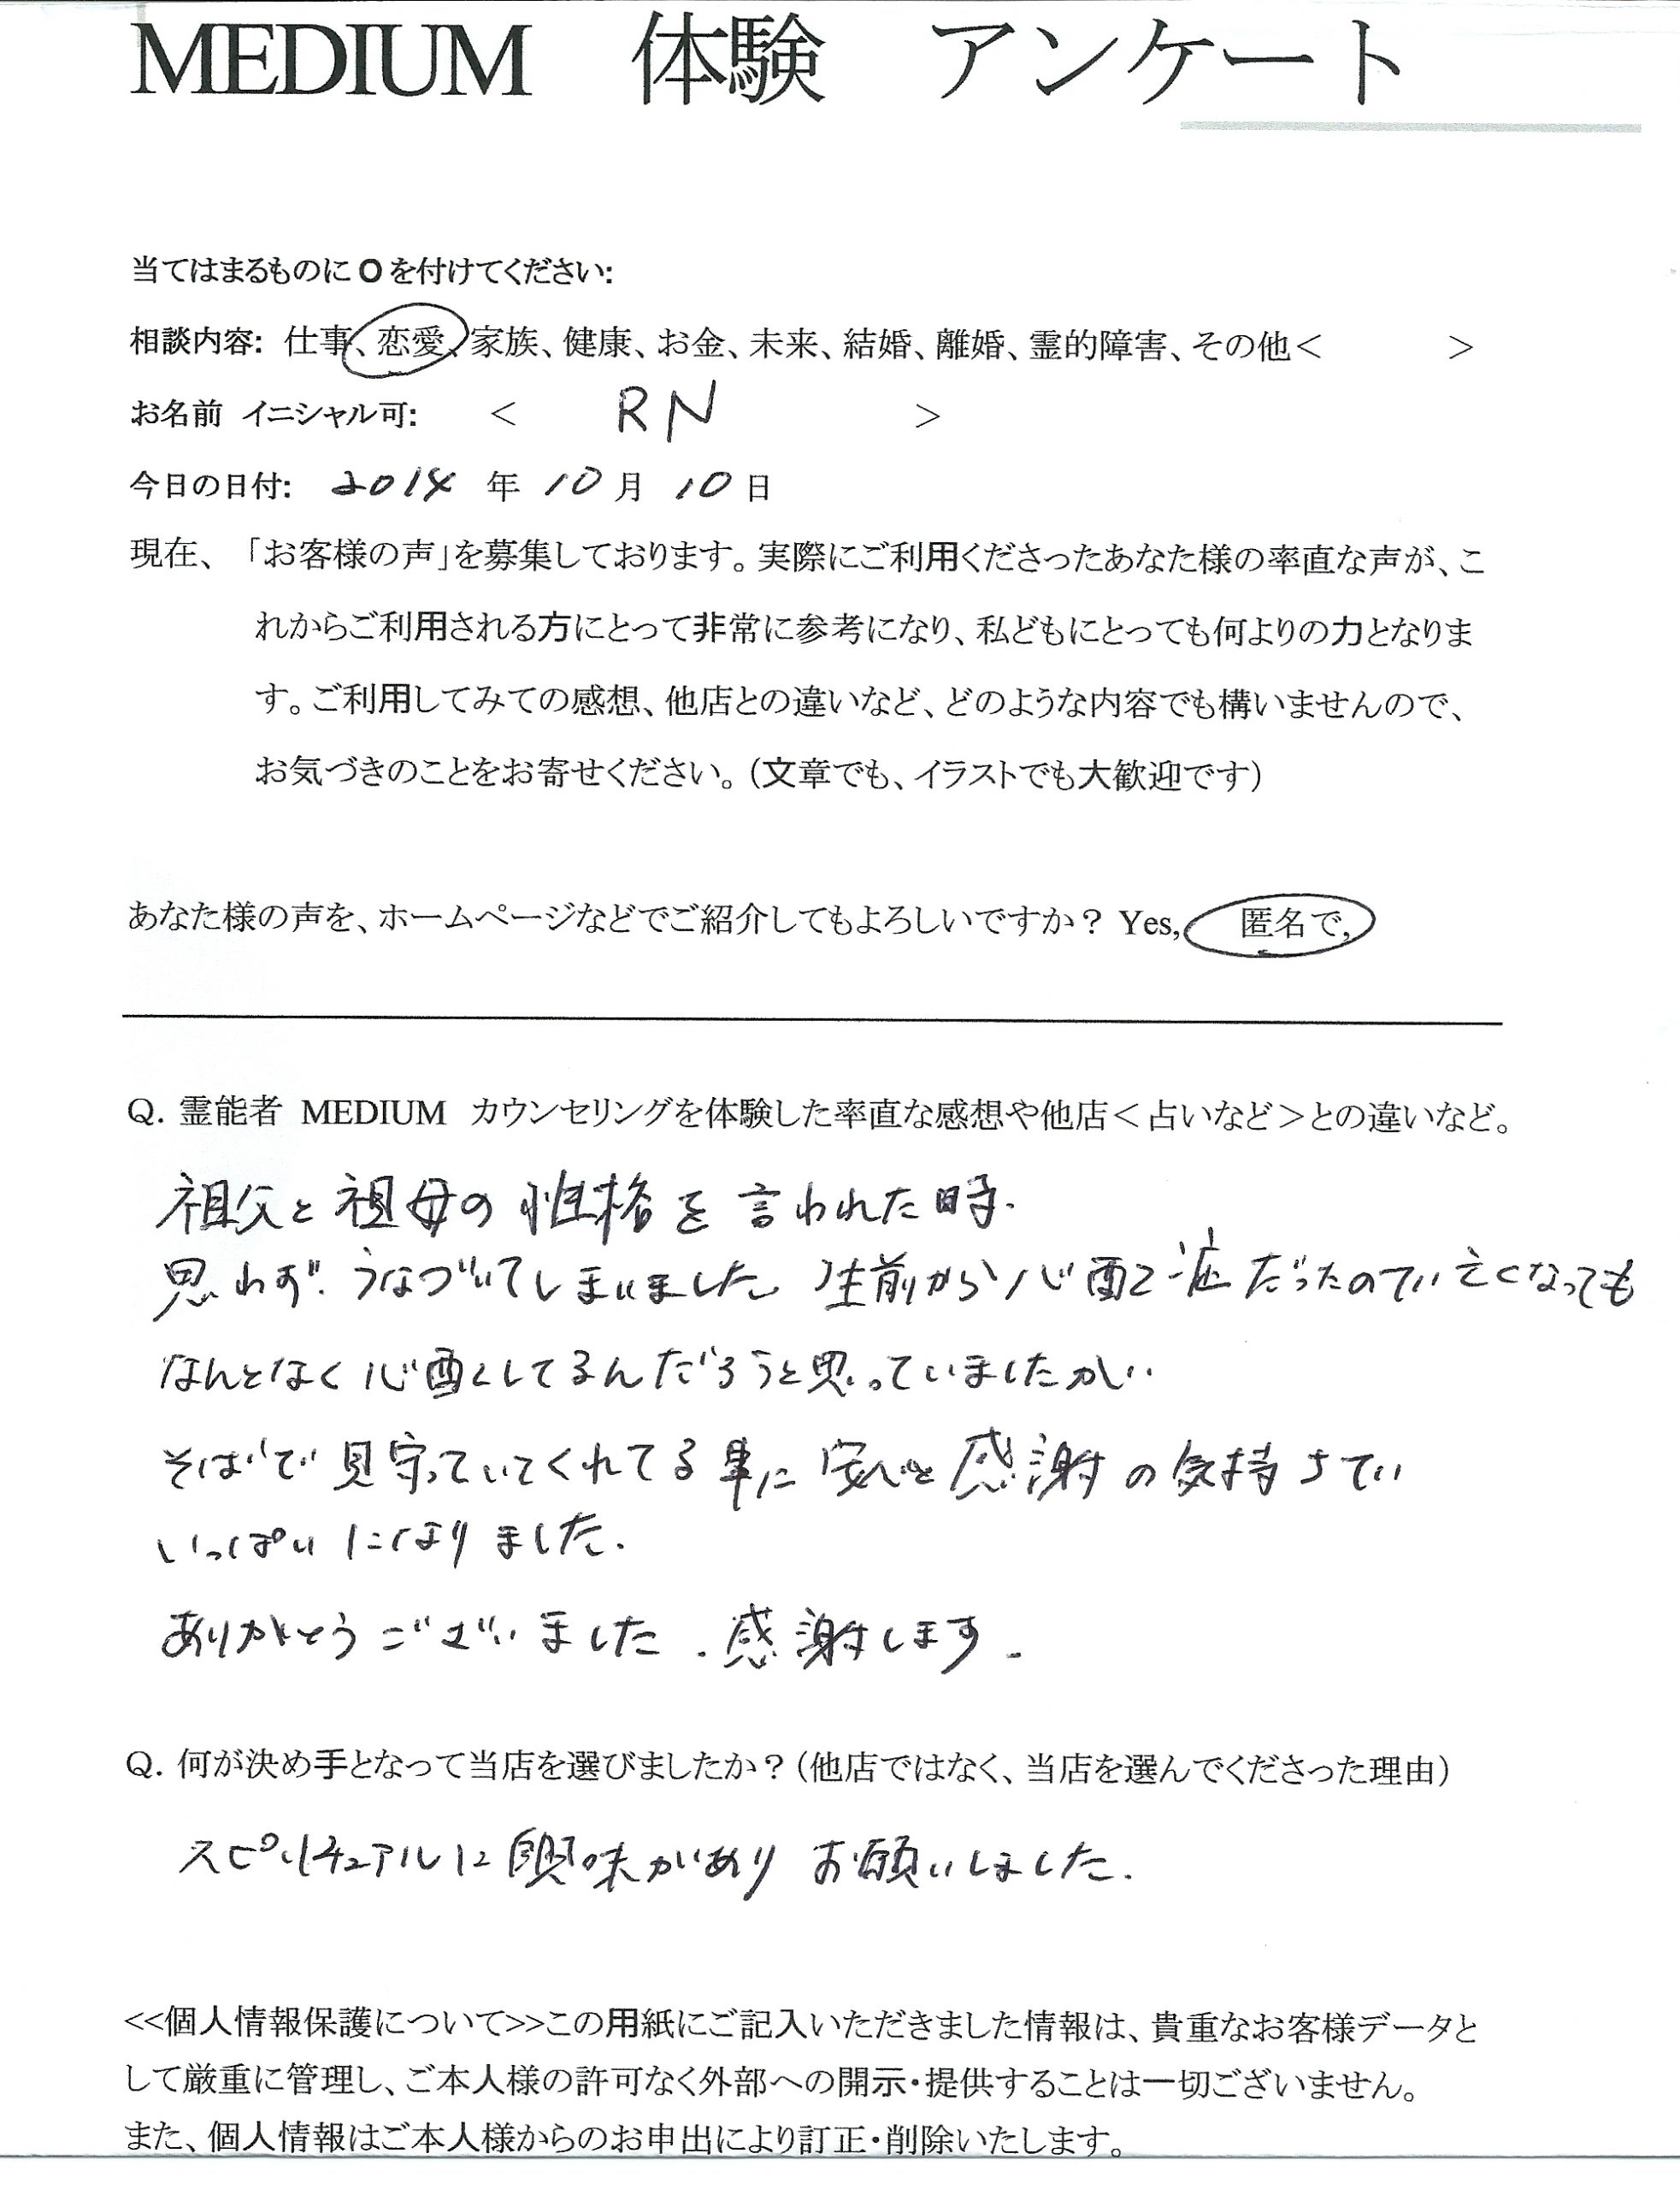 MEDIUM 体験 アンケート
当てはまるものにOを付けてください:
相談内容: 仕事、恋愛、家族、健康、お金、未来、結婚、離婚、霊的障害、その他< >
お名前 イニシャル可: < RN >
今日の日付: 2014 年 10 月 10 日
現在、「お客様の声」を募集しております。実際にご利用くださったあなた様の率直な声が、こ
れからご利用される方にとって非常に参考になり、私どもにとっても何よりの力となりま
す。ご利用してみての感想、他店との違いなど、どのような内容でも構いませんので、
お気づきのことをお寄せください。(文章でも、イラストでも大歓迎です)
あなた様の声を、ホームページなどでご紹介してもよろしいですか? Yes, 匿名で,
Q. 霊能者 MEDIUM カウンセリングを体験した率直な感想や他店<占いなど>との違いなど。
祖父と祖母の性格を言われた時.
思わず.うなづいてしまいました 生前から心配症だったので亡くなっても
なんとなく心配してるんだろうと思っていましたが
そばで見守っていてくれてる事に安心と感謝の気持ちで
いっぱいになりました.
ありがとうございました.感謝します.
Q. 何が決め手となって当店を選びましたか?(他店ではなく、当店を選んでくださった理由)
スピリチュアルに興味がありお願いしました.
<<個人情報保護について>>この用紙にご記入いただきました情報は、貴重なお客様データと
して厳重に管理し、ご本人様の許可なく外部への開示・提供することは一切ございません。
また、個人情報はご本人様からのお申出により訂正・削除いたします。